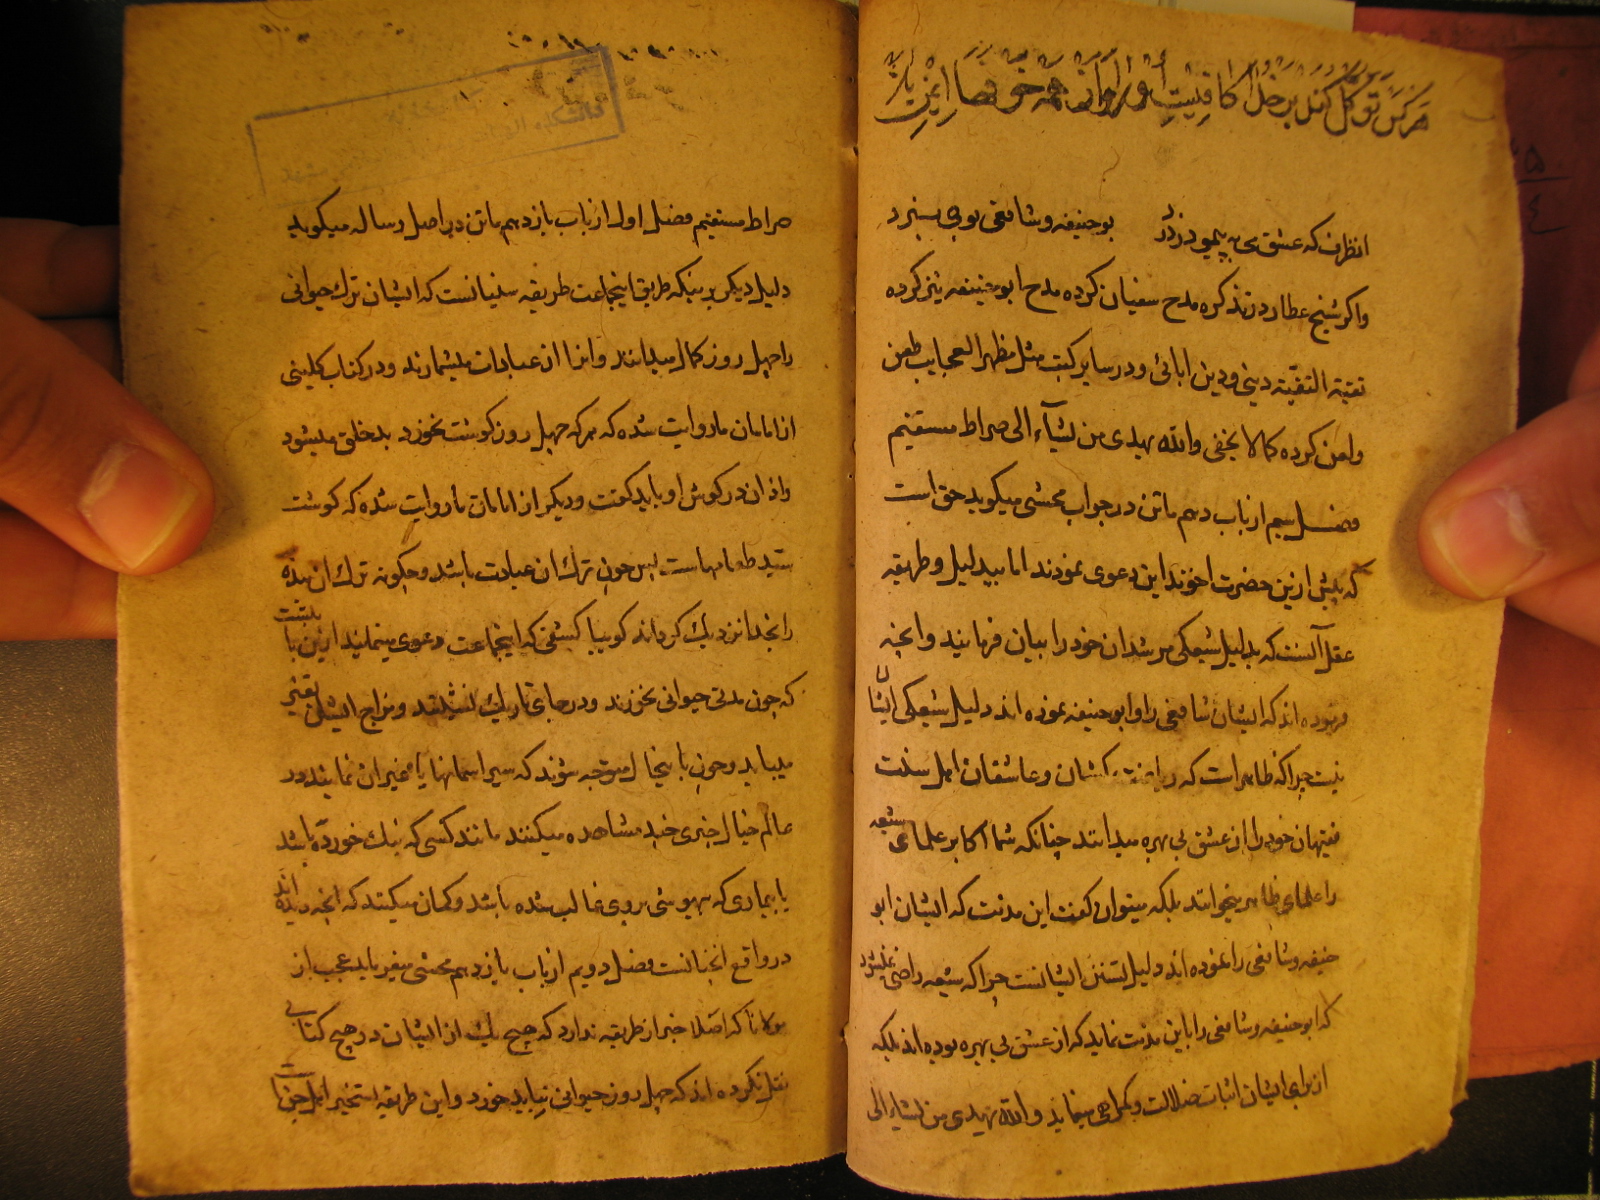 هر کس توکل کند بر خدا کافیست او را و از همه
انطرف که عشق می‌ پیمود درد بو حنیفه و شافعی بویی نبرد
واکر شیخ عطار در تذکره مدح سفیان کرده مدح ابو حنیفه نیز کرده
تقیة التقیّة دینی و دین ابائی و در سایر کتب مثل مظهر العجایب طعن
ولعن کرده کما لا یخفی والله یهدی من یشآء الی صراط مستقیم
فصل از باب دهم ماتن در جواب محشی میکوید حق است
که پیش ازین حضرت اخوند این دعوی نمودند اما بیدلیل و طریقه
عقل آنست که بدلیل شیعکی مرشدان خود را بیان فرمایند وانچه
فرموده اند که ایشان شافعی را و ابو حنیفه نموده اند دلیل شیعکی ایشان
نیست چرا که ظاهر است که کشان و عاشقان اهل سنت
فقیهان خود را از عشق بی بهره میدانند چنانکه شما اکابر علمای شیعه
را علمای ظاهر میخوانند بلکه میتوان کفت این مذمت که ایشان ابو
حنیفه و شافعی را نموده اند دلیل تسنن ایشانست چرا که شیعه راضی نمیشود
که ابو حنیفه و شافعی را باین مذمت نماید که از عشق بی بهره بوده اند بلکه
از برای ایشان اثبات ضلالت و کمراهی مینماید والله یهدی من یشاء الی
صراط مستقیم فصل اول از باب یازدهم ماتن در اصل رساله میکوید
دلیل دیکر بر اینکه طریق اینجماعت طریقه سنیانست که ایشان ترک حیوانی
را چهل روز کمال میدانند وانرا از عبادات میشمارند و در کتاب کلینی
از امامان ما روایت شده که هر که چهل روز کوشت نخورد بدخلق میشود
واذان در کوش او باید کفت و دیکر از امامان ما روایت شده که کوشت
سید طعامهاست پس چون ترک ان عبادت باشد و چکونه ترک ان بنده
را بخدا نزدیک کرداند کویا کشفی که اینجماعت دعوی مینمایند ازین بابست
که چون مدتی حیوانی نخورند و در جای تاریک نشینند و مزاج ایشان تغییر
میباید وچون باینحال متوجه شوند که سیر اسمانها یا غیر ان نمایند در
عالم خیال چیزی چند مشاهده میکنند مانند کسی که بنک خورده باشد
یا بیماری که بیهوشی بر وی غالب شده باشد و کمان میکنند که انچه دیده اند
در واقع انچنانست فصل دویم از باب یازدهم محشی میفرماید عجب از
مولانا که اصلا خبر از طریقه ندارد که هیچ یک از ایشان در هیچ کتابی
نقل نکرده اند که چهل روز حیوانی نباید خورد واین طریقه تسخیر اهل جن است